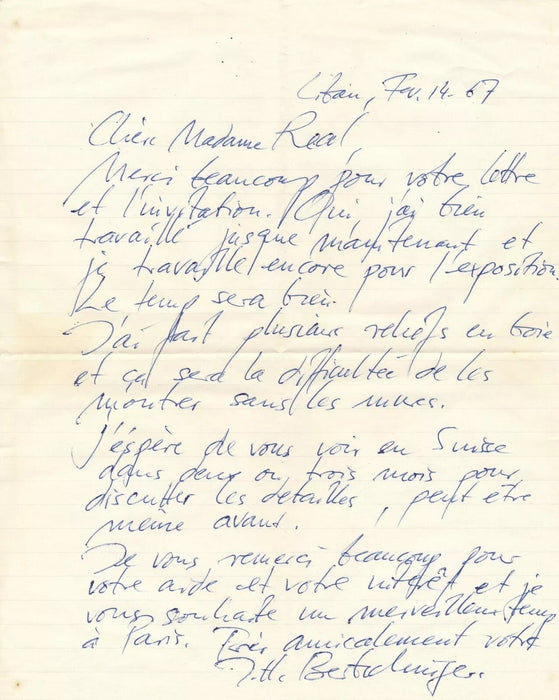 Fev. 14 - 67
Chère Madame Real,
Merci beaucoup pour votre lettre
et l'invitation. Oui, j'ai bien
travaillé jusque maintenant et
je travaille encore pour l'exposition.
Le temp sera bien.
J'ai fait plusieur reliefs en bois
et ça sera la difficultée de les
montrer sans les murs.
J'éspère de vous voir en Suisse
dans deux ou trois mois pour
discutter les detailles, peut être
même avant.
Je vous remerci beaucoup pour
votre aide et votre intérêt et je
vous souhaite un merveilleux temp
à Paris. Très amicalement votre